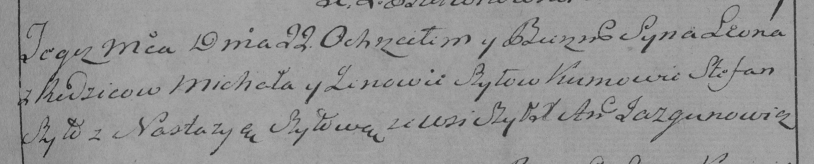 Tegoz Mca Dnia 22. Ochrzciłem y Bierzm Syna Leona
z Rodzicow Michała y Zinowii Ryłow Kumowie Stefan
Ryło z Nastazyą Ryłową ze wsi Ryło X An Jazgunowicz